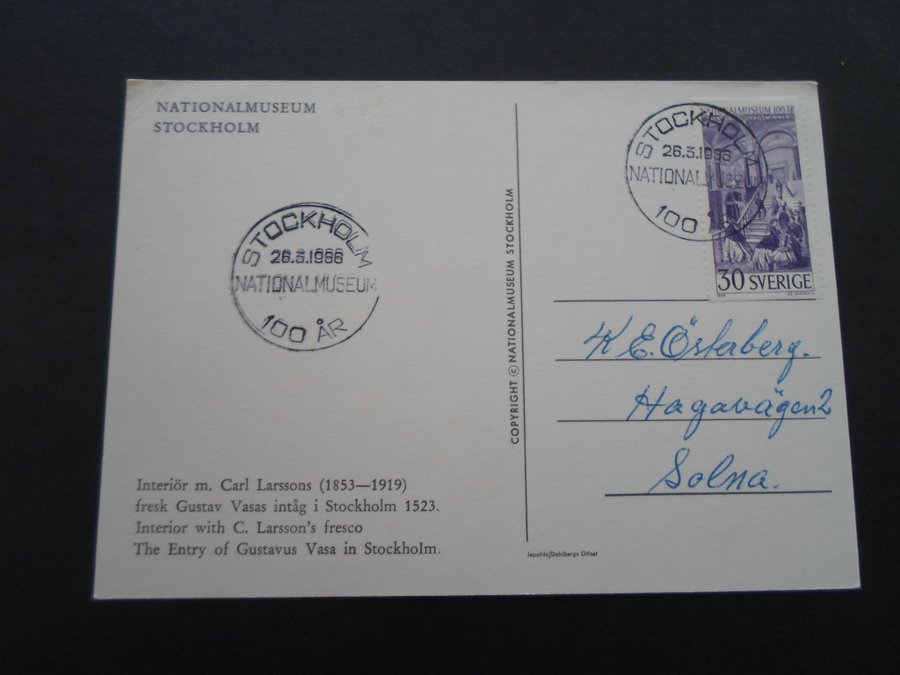 NATIONALMUSEUM
STOCKHOLM
STOCKHOLM
26.3.1966
NATIONALMUSEUM
100 ÅR
Interiör m. Carl Larssons (1853—1919)
fresk Gustav Vasas intåg i Stockholm 1523.
Interior with C. Larsson's fresco
The Entry of Gustavus Vasa in Stockholm.
COPYRIGHT © NATIONALMUSEUM STOCKHOLM
NATIONALMUSEUM 100 ÅR
STOCKHOLM
26.3.1966
NATIONALMUSEUM
100 ÅR
30 SVERIGE
K E. Österberg.
Hagavägen 2
Solna.
Japolito/Dahlbergs Offset